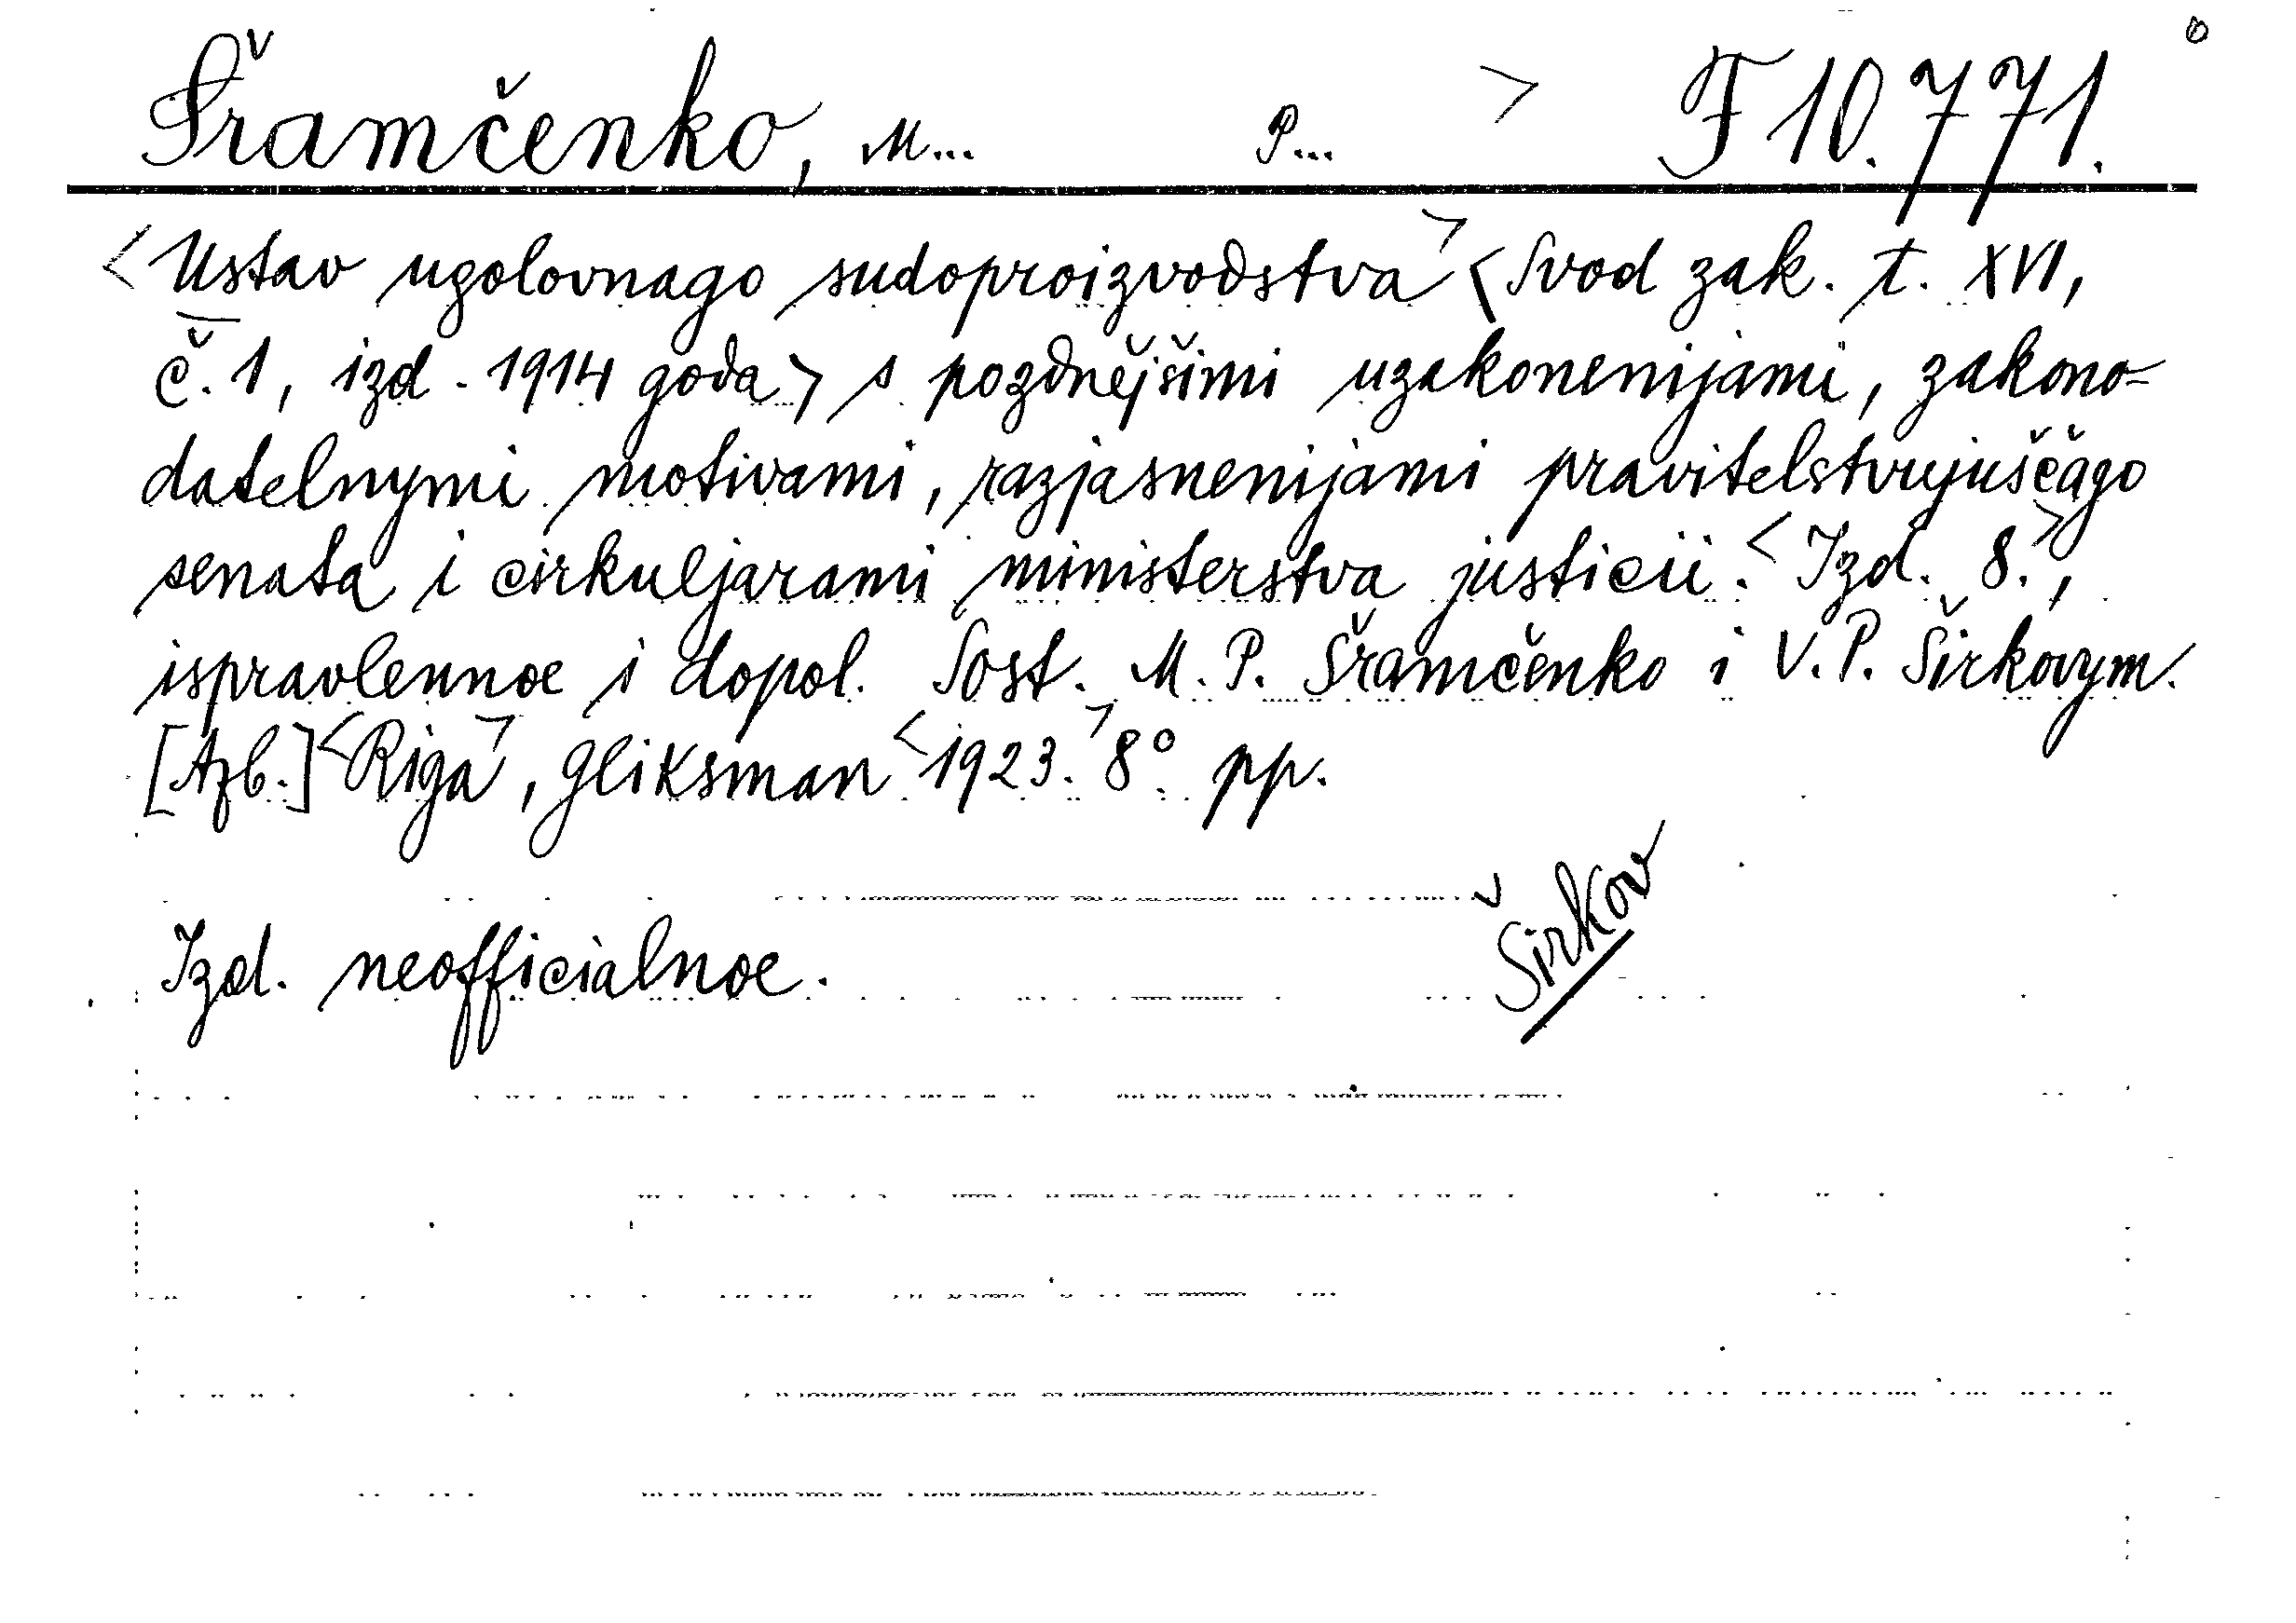 Šramčenko, M... P... > F 10.771.
<Ustav ugolovnago sudoproizvodstva> <Svod zak. t. XVI,
č. 1, izd. 1914 goda> s pozdnějšimi uzakonenijami, zakono-
datelnymi motivami, razjasnenijami pravitelstvujuščago
senata i cirkuljarami ministerstva justicii. <Izd. 8.>,
ispravlennoe i dopol. Sost. M. P. Šramčenko i V. P. Širkovym.
[Azb.] <Riga>, Gliksman <1923.> 8°. pp.
Širkov
Izd. neofficialnoe.